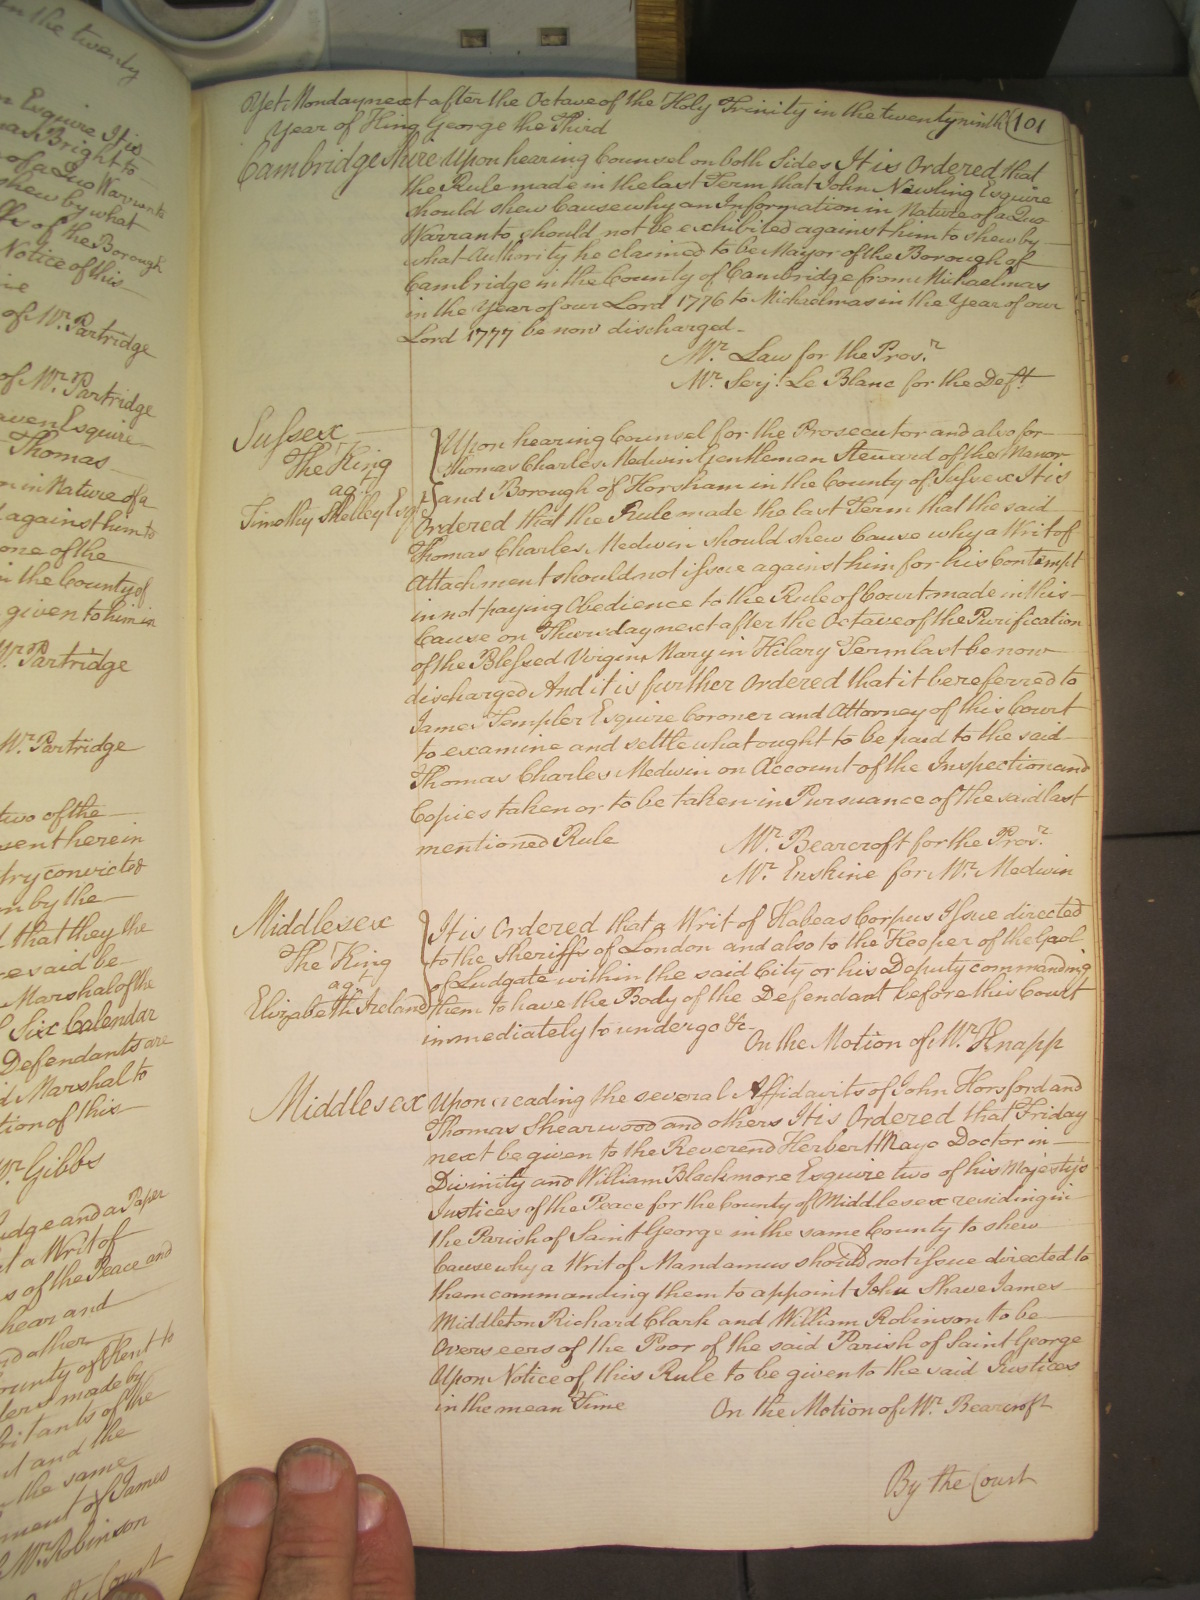 in the twenty
Esquire It is
Bright to
of a Quo Warranto
shew by what
of the Borough
Notice of this
of Mr. Partridge
of Mr. Partridge
Esquire
Thomas
in Nature of a
against him to
one of the
in the County of
given to him in
Mr. Partridge
Mr. Partridge
two of the
sent herein
try convicted
by the
that they the
said be
Marshal of the
Six Calendar
Defendants are
Marshal to
tion of this
Mr. Gibbs
Judge and a Paper
a Writ of
s of the Peace and
hear and
other
County of Kent to
ders made by
bitants of the
and the
the same
ment of James
Mr. Robinson
the Court
Yet. Monday next after the Octave of the Holy Trinity in the twenty ninth 101
Year of King George the Third
Cambridgeshire Upon hearing Counsel on both Sides It is Ordered that
the Rule made in the last Term that John Newling Esquire
should shew Cause why an Information in Nature of a Quo
Warranto should not be exhibited against him to shew by
what Authority he claimed to be Mayor of the Borough of
Cambridge in the County of Cambridge from Michaelmas
in the Year of our Lord 1776 to Michaelmas in the Year of our
Lord 1777 be now discharged.
Mr. Law for the Prosr.
Mr. Serjt. Le Blanc for the Deft.
Sussex
The King
agt.
Timothy Shelley Esqr.
Upon hearing Counsel for the Prosecutor and also for
Thomas Charles Medwin Gentleman Steward of the Manor
and Borough of Horsham in the County of Sussex It is
Ordered that the Rule made the last Term that the said
Thomas Charles Medwin should shew Cause why a Writ of
Attachment should not issue against him for his Contempt
in not paying Obedience to the Rule of Court made in this
Cause on Thursday next after the Octave of the Purification
of the Blessed Virgin Mary in Hilary Term last be now
discharged And it is further Ordered that it be referred to
James Templer Esquire Coroner and Attorney of this Court
to examine and settle what ought to be paid to the said
Thomas Charles Medwin on Account of the Inspection and
Copies taken or to be taken in Pursuance of the said last
mentioned Rule
Mr. Bearcroft for the Prosr.
Mr. Erskine for Mr. Medwin
Middlesex
The King
agt.
Elizabeth Ireland
It is Ordered that a Writ of Habeas Corpus Issue directed
to the Sheriffs of London and also to the Keeper of the Gaol
of Ludgate within the said City or his Deputy commanding
them to have the Body of the Defendant before this Court
immediately to undergo &c.
On the Motion of Mr. Knapp
Middlesex Upon reading the several Affidavits of John Horsford and
Thomas Shearwood and others It is Ordered that Friday
next be given to the Reverend Herbert Mayo Doctor in
Divinity and William Blackmore Esquire two of his Majesty's
Justices of the Peace for the County of Middlesex residing in
the Parish of Saint George in the same County to shew
Cause why a Writ of Mandamus should not issue directed to
them commanding them to appoint John Shave James
Middleton Richard Clark and William Robinson to be
Overseers of the Poor of the said Parish of Saint George
Upon Notice of this Rule to be given to the said Justices
in the mean Time
On the Motion of Mr. Bearcroft
By the Court